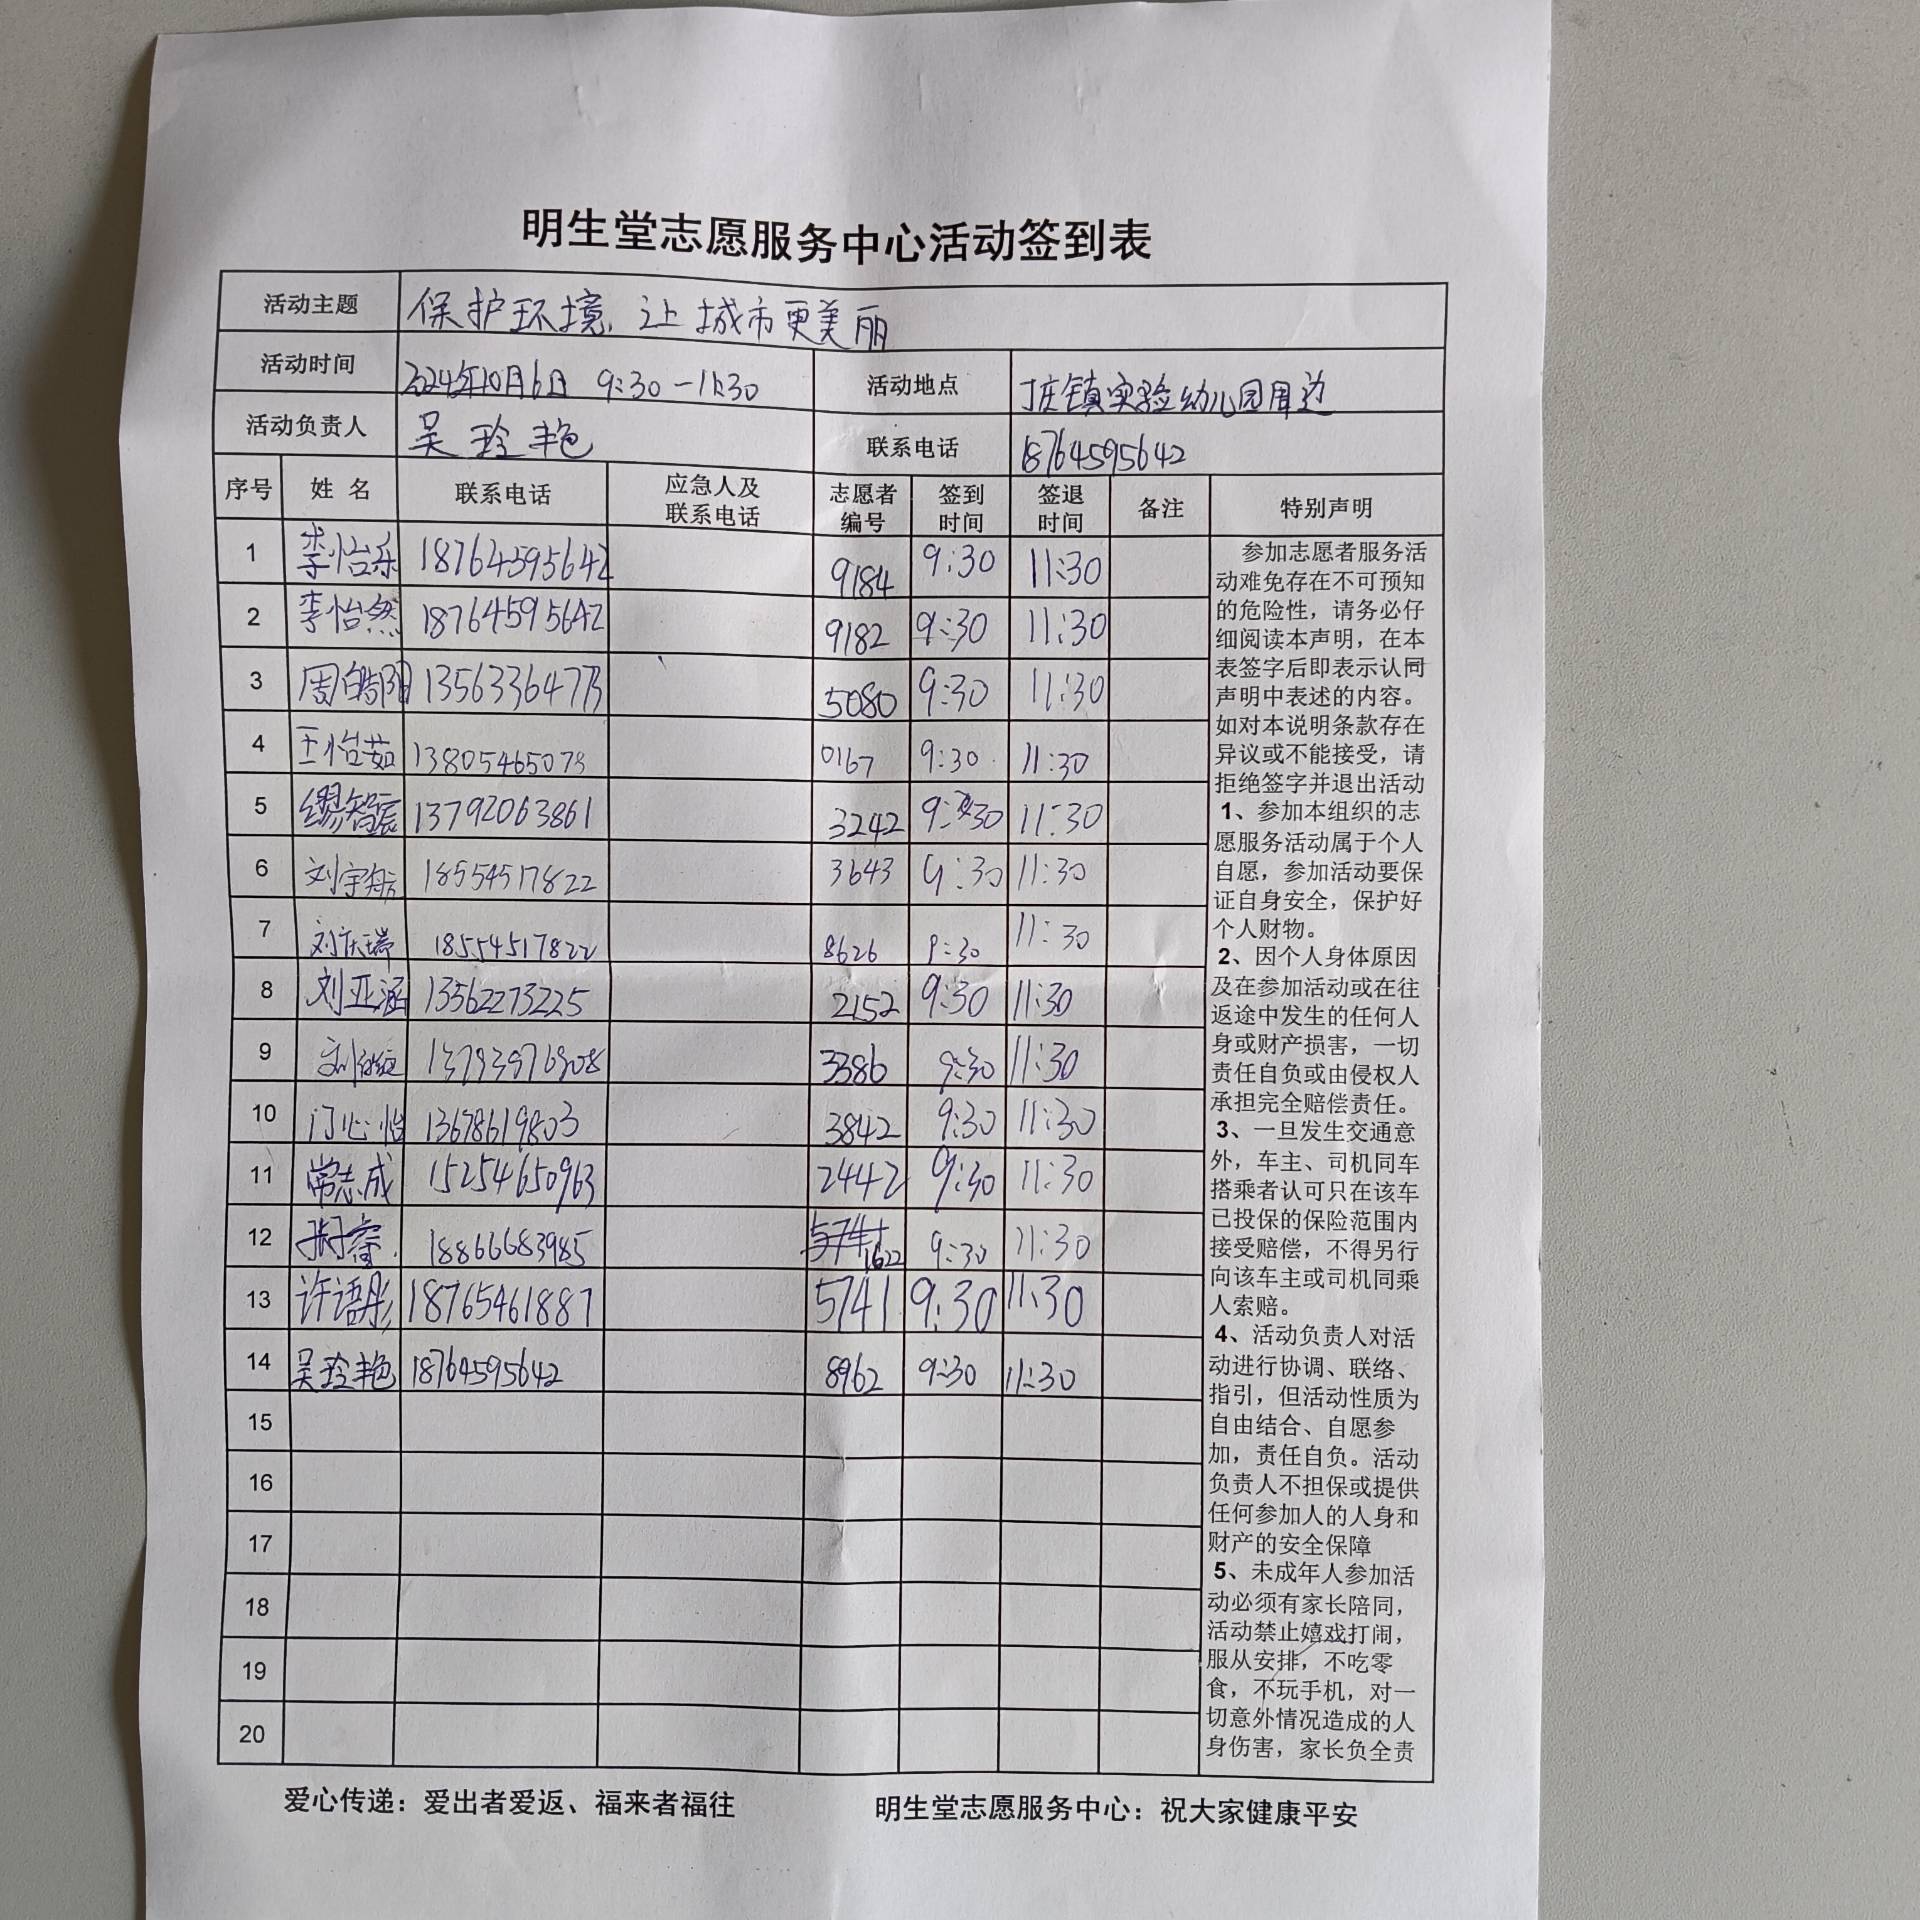 明生堂志愿服务中心活动签到表
活动主题 保护环境,让城市更美丽
活动时间 2024年10月6日 9:30-11:30 活动地点 丁庄镇实验幼儿园周边
活动负责人 吴玲艳 联系电话 18764595642
序号 姓名 联系电话 应急人及联系电话 志愿者编号 签到时间 签退时间 备注 特别声明
1 李怡乐 18764595642 9184 9:30 11:30
2 李怡然 18764595642 9182 9:30 11:30
3 周皓阳 5080 9:30 11:30
4 王怡茹 13805465078 0167 9:30 11:30
5 缪智宸 13792063861 3242 9:30 11:30
6 刘宇航 18554517822 3643 9:30 11:30
7 刘庆瑞 18554517822 8626 9:30 11:30
8 刘亚涵 13562273225 2152 9:30 11:30
9 3386 9:30 11:30
10 门心怡 13678619803 3842 9:30 11:30
11 常志成 15254650963 2442 9:30 11:30
12 18866683985 1622 9:30 11:30
13 许语彤 18765461887 5741 9:30 11:30
14 吴玲艳 18764595642 8962 9:30 11:30
15
16
17
18
19
20
参加志愿者服务活
动难免存在不可预知
的危险性，请务必仔
细阅读本声明，在本
表签字后即表示认同
声明中表述的内容。
如对本说明条款存在
异议或不能接受，请
拒绝签字并退出活动
1、参加本组织的志
愿服务活动属于个人
自愿，参加活动要保
证自身安全，保护好
个人财物。
2、因个人身体原因
及在参加活动或在往
返途中发生的任何人
身或财产损害，一切
责任自负或由侵权人
承担完全赔偿责任。
3、一旦发生交通意
外，车主、司机同车
搭乘者认可只在该车
已投保的保险范围内
接受赔偿，不得另行
向该车主或司机同乘
人索赔。
4、活动负责人对活
动进行协调、联络、
指引，但活动性质为
自由结合、自愿参
加，责任自负。活动
负责人不担保或提供
任何参加人的人身和
财产的安全保障
5、未成年人参加活
动必须有家长陪同，
活动禁止嬉戏打闹，
服从安排，不吃零
食，不玩手机，对一
切意外情况造成的人
身伤害，家长负全责
爱心传递：爱出者爱返、福来者福往
明生堂志愿服务中心：祝大家健康平安